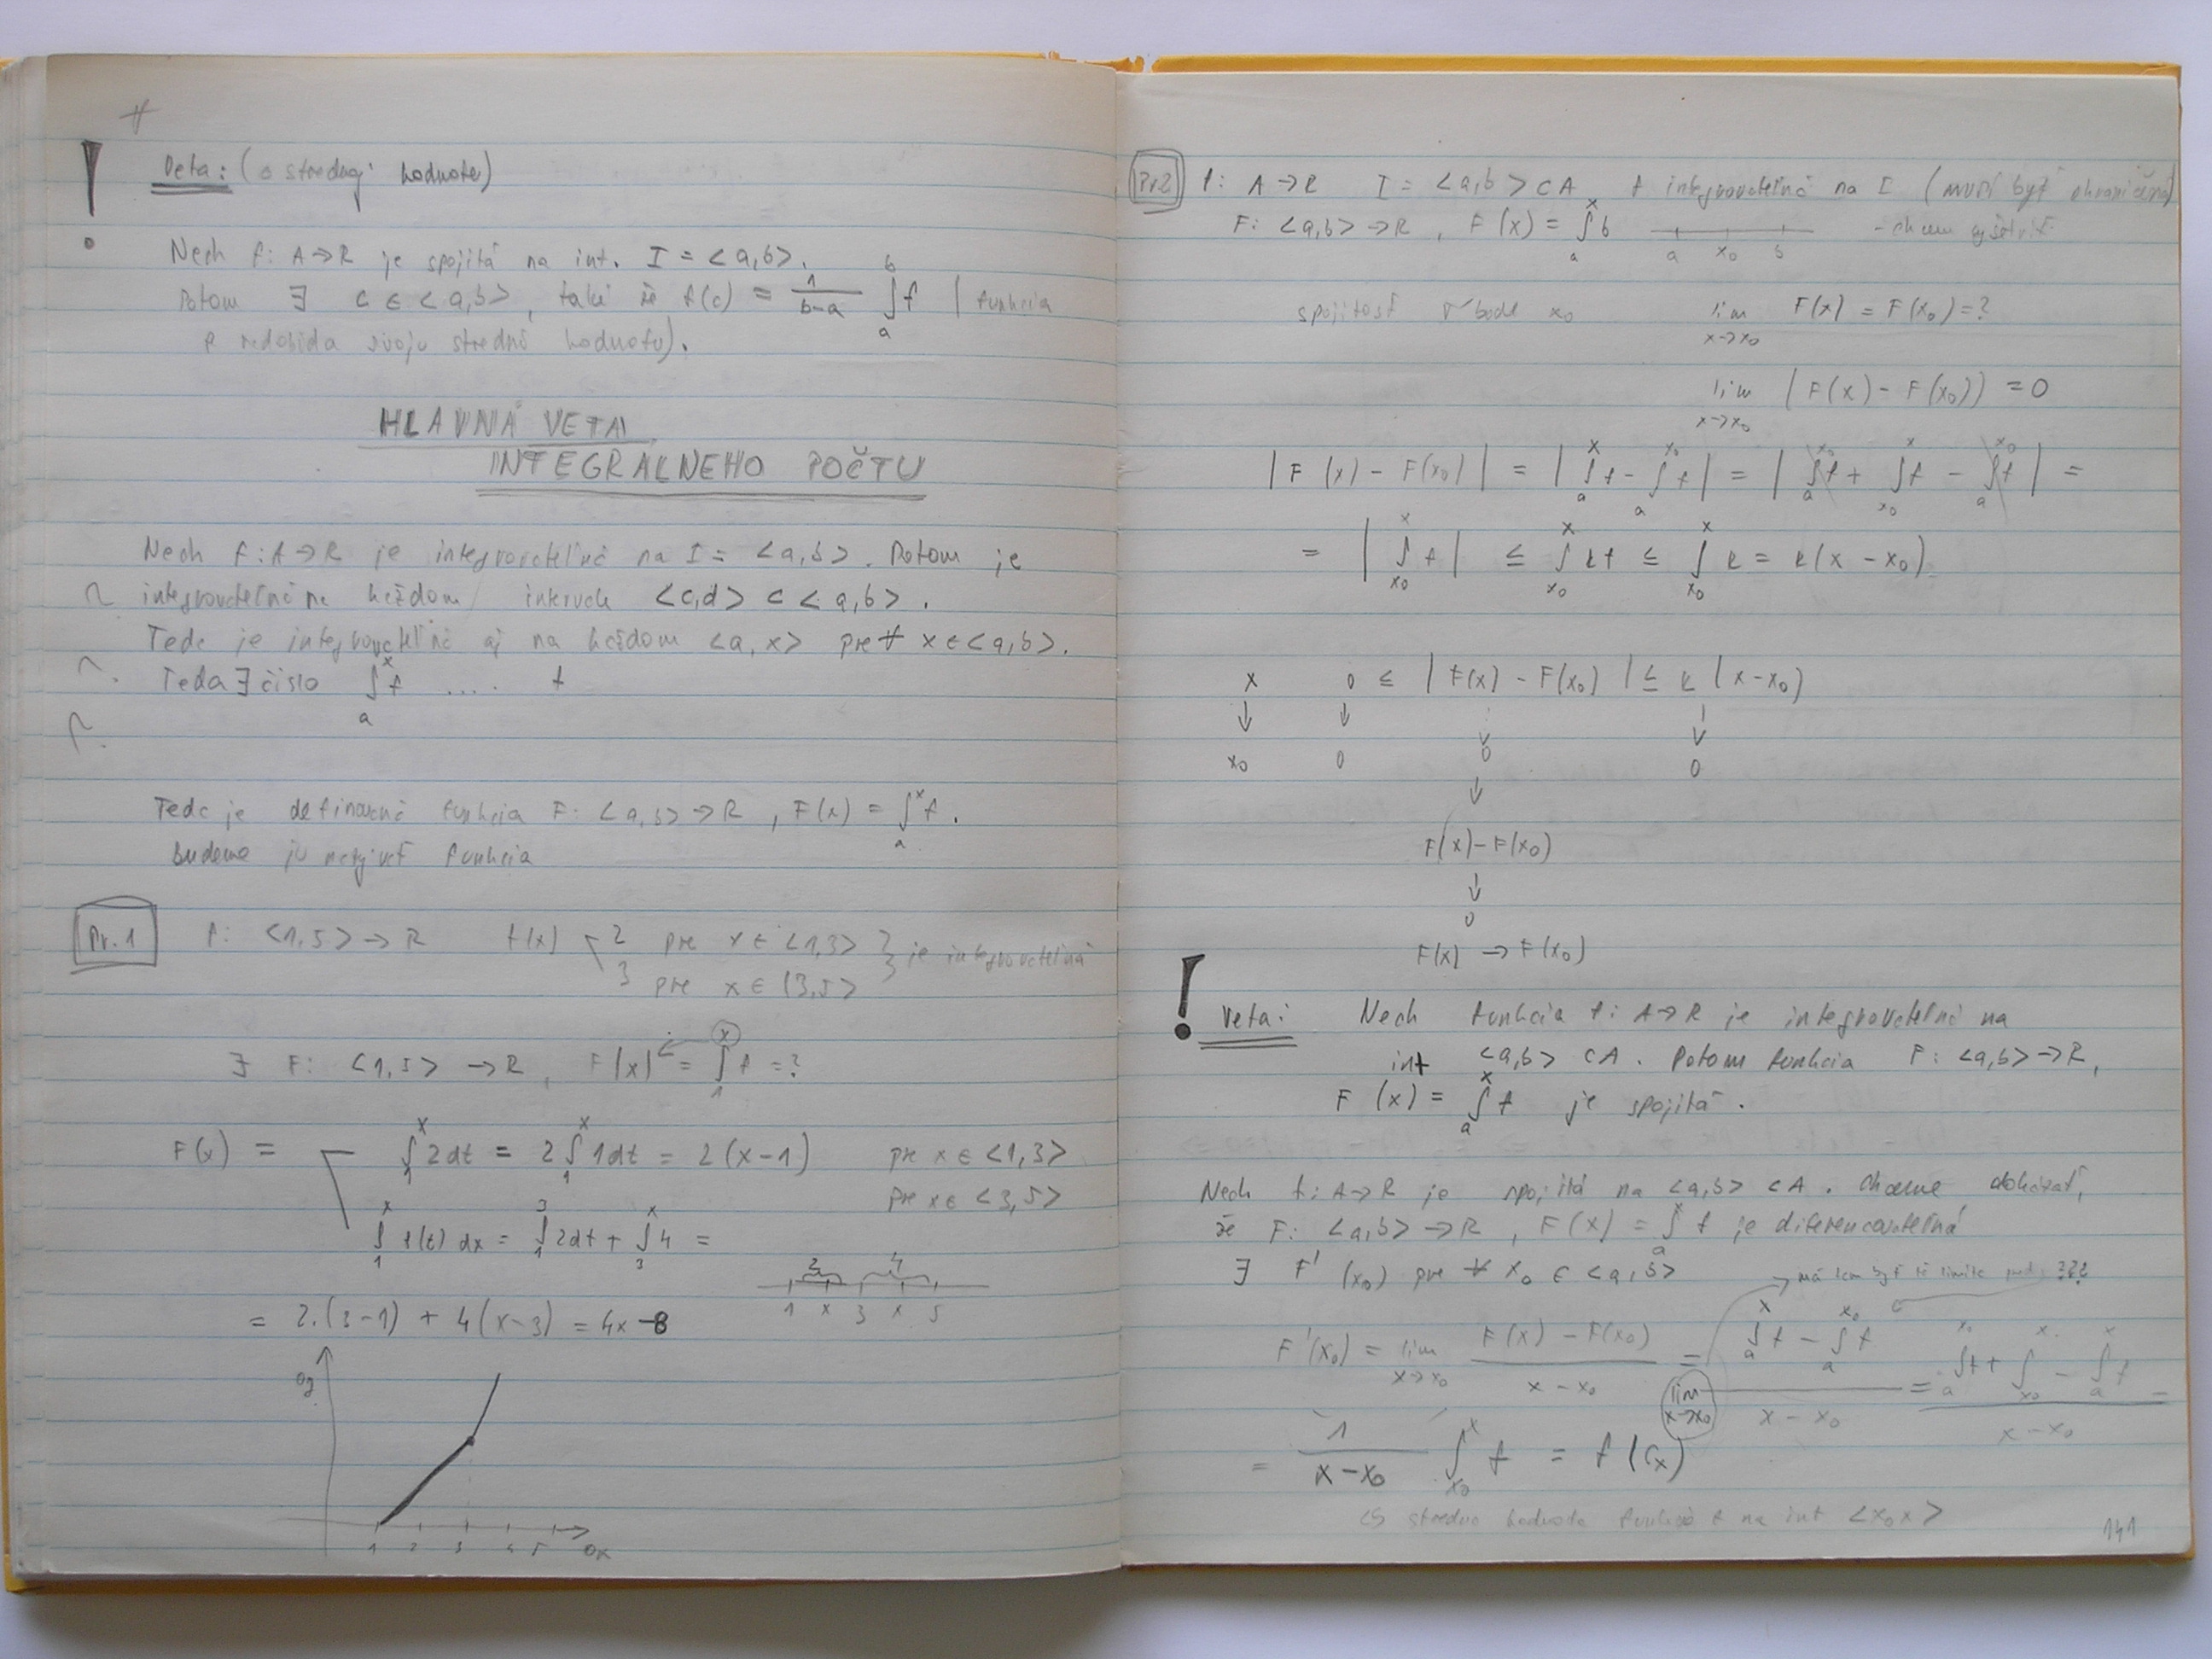 Veta: (o strednej hodnote)
Nech f: A → R je spojitá na int. I = <a,b>.
Potom ∃ c ∈ <a,b>, také že f(c) = 1/(b-a) ∫_a^b f (funkcia
f nadobúda svoju strednú hodnotu).
HLAVNÁ VETA
INTEGRÁLNEHO POČTU
Nech f: A → R je integrovateľná na I = <a,b>. Potom je
integrovateľná na každom intervale <c,d> ⊂ <a,b>.
Teda je integrovateľná aj na každom <a,x> pre ∀ x ∈ <a,b>.
Teda ∃ číslo ∫_a^x f .... f
Teda je definovaná funkcia F: <a,b> → R, F(x) = ∫_a^x f.
Budeme ju nazývať funkcia
Pr. 1 f: <1,5> → R f(x) 2 pre x ∈ <1,3> } je integrovateľná
3 pre x ∈ (3,5>
∃ F: <1,5> → R, F(x) = ∫_1^x f = ?
F(x) = ∫_1^x 2dt = 2 ∫_1^x 1dt = 2(x-1) pre x ∈ <1,3>
pre x ∈ <3,5>
∫_1^x f(t) dx = ∫_1^3 2dt + ∫_3^x 4 =
2 4
1 x 3 x 5
= 2.(3-1) + 4(x-3) = 4x-8
oy
1 2 3 4 5 ox
Pr2 f: A → R I = <a,b> ⊂ A f integrovateľná na I (musí byť ohraničená)
F: <a,b> → R, F(x) = ∫_a^x b a x₀ b - chcem vyšetriť
spojitosť v bode x₀ lim_{x→x₀} F(x) = F(x₀) = ?
lim_{x→x₀} (F(x) - F(x₀)) = 0
|F(x) - F(x₀)| = |∫_a^x f - ∫_a^{x₀} f| = |∫_a^{x₀} f + ∫_{x₀}^x f - ∫_a^{x₀} f| =
= |∫_{x₀}^x f| ≤ ∫_{x₀}^x kf ≤ ∫_{x₀}^x k = k(x - x₀)
x 0 ≤ |F(x) - F(x₀)| ≤ k |x-x₀)
↓ ↓ ↓ ↓
x₀ 0 0 0
↓
F(x) - F(x₀)
↓
0
F(x) → F(x₀)
Veta: Nech funkcia f: A → R je integrovateľná na
int <a,b> ⊂ A. Potom funkcia F: <a,b> → R,
F(x) = ∫_a^x f je spojitá.
Nech f: A → R je spojitá na <a,b> ⊂ A. Chceme dokázať,
že F: <a,b> → R, F(x) = ∫_a^x f je diferencovateľná
∃ F'(x₀) pre ∀ x₀ ∈ <a,b>
má tam byť tá limita ???
F'(x₀) = lim_{x→x₀} (F(x) - F(x₀))/(x - x₀) = lim_{x→x₀} (∫_a^x f - ∫_a^{x₀} f)/(x - x₀) = (∫_a^{x₀} f + ∫_{x₀}^x - ∫_a^x f)/(x - x₀) =
= 1/(x - x₀) ∫_{x₀}^x f = f(cₓ)
stredná hodnota funkcie f na int <x₀x>
141